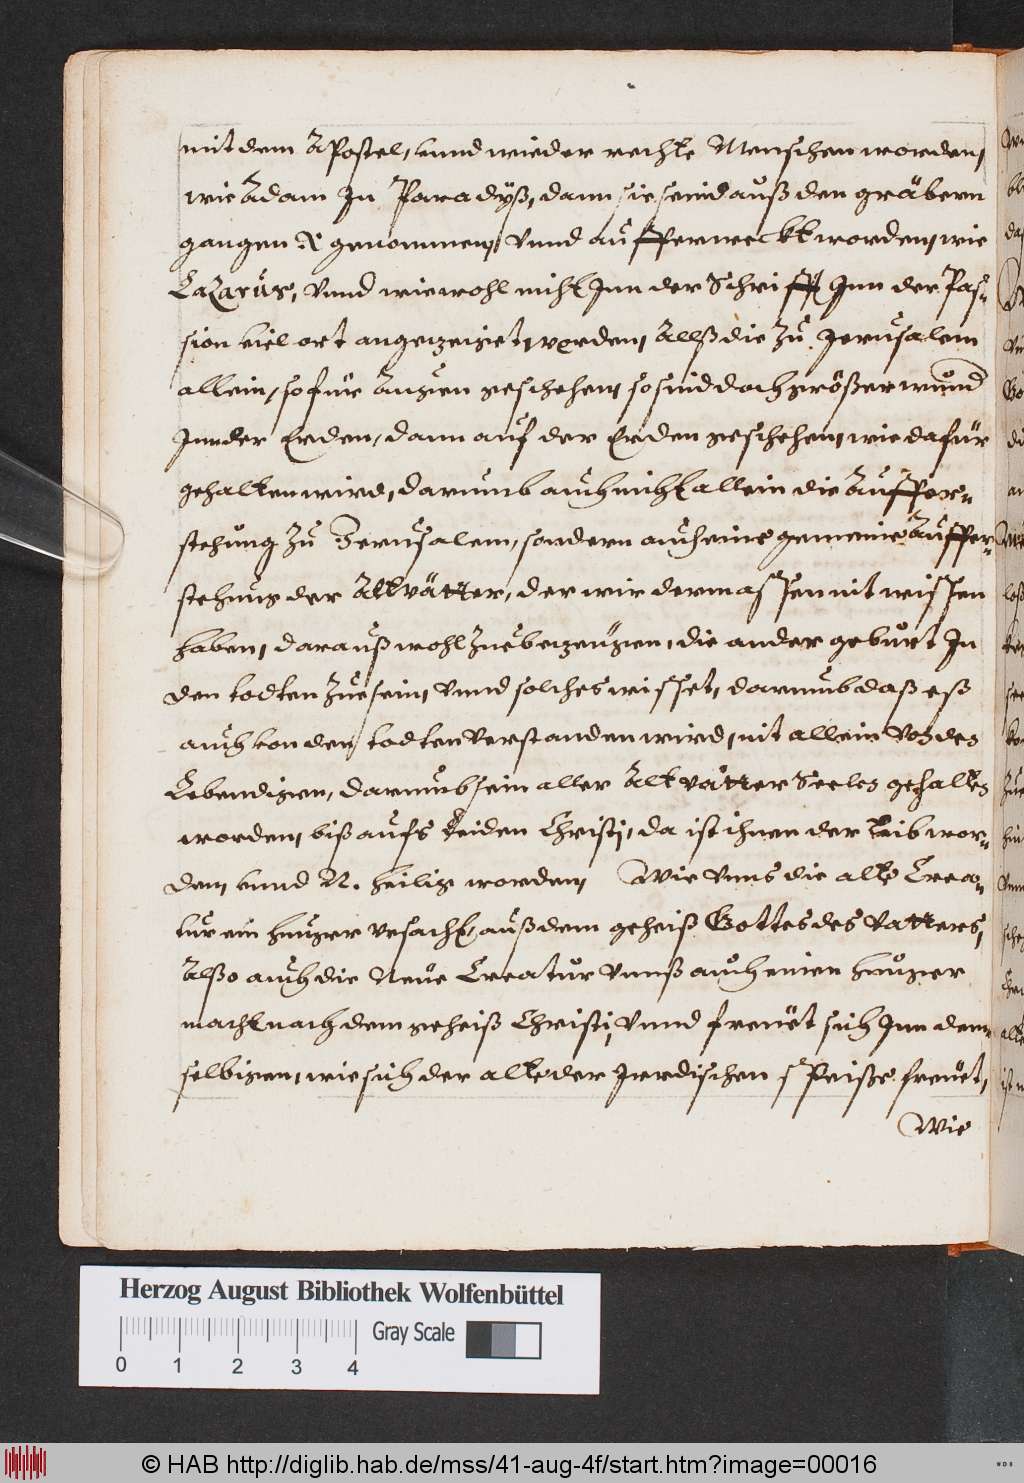 mit dem Apostel, unnd wieder rechte Menschen worden,
wie Adam In Paradyß, dann sie seind auß den gräbern
gangen & genommen, Vnnd aufferweckt worden, wie
Lazarus, Vnnd wiewohl nicht Inn der Schrifft Inn der Pas-
sion viel ort angezeiget worden, Allß die Zu Jerusalem
allein, so für Augen geschehen, so sind doch größer wund
Inn der Erden, dann auf der Erden geschehen, wie dafür
gehalten wird, darumb auch nicht allein die Auffer-
stehung Zu Jerusalem, sondern auch eine gemeine Auffer-
stehung der Altvätter, der wir dermassen mit wissen
haben, darauß wohl Zue bezeugen, die ander geburt In
den todten Zue sein, Vnnd solches wisset, darumb daß eß
auch von den todten verstanden wird, nit allein Von den
Lebendigen, darumb sein aller Altvätter Seelen gehalten
worden, biß aufs Leiden Christi, da ist ihnen der Leib wor-
den, unnd N. heilig worden, Wie Vnns die alte Crea-
tur ein hunger vrsacht, auß dem geheiß Gottes des Vatters,
Alßo auch die Neue Creatur Vnnß auch einen hunger
macht nach dem geheiß Christi, Vnnd freuet sich Inn dem-
selbigen, wie sich der alte der Irrdischen speiße freuet,
Wie
Herzog August Bibliothek Wolfenbüttel
Gray Scale
0 1 2 3 4
© HAB http://diglib.hab.de/mss/41-aug-4f/start.htm?image=00016